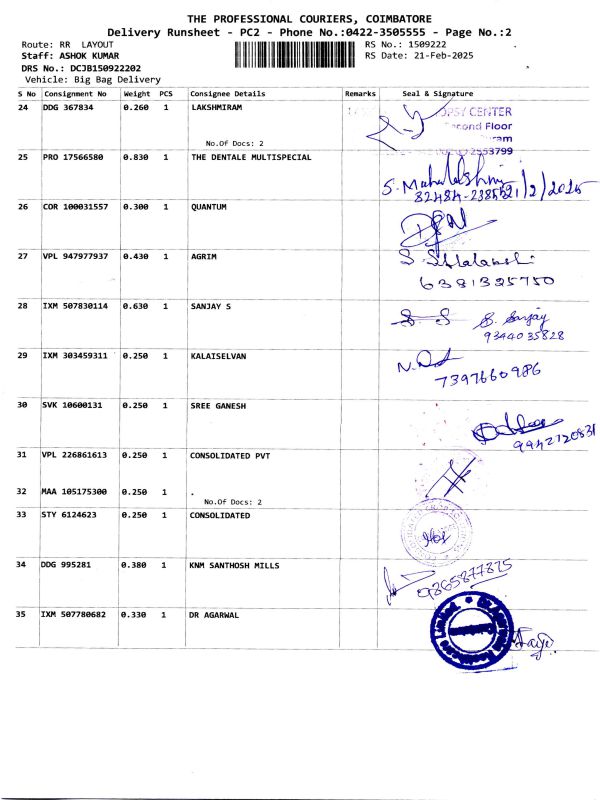 THE PROFESSIONAL COURIERS, COIMBATORE
Delivery Runsheet - PC2 - Phone No.:0422-3505555 - Page No.:2
Route: RR LAYOUT
RS No.: 1509222
Staff: ASHOK KUMAR
RS Date: 21-Feb-2025
DRS No.: DCJB150922202
Vehicle: Big Bag Delivery
S No Consignment No Weight PCS Consignee Details Remarks Seal & Signature
24 DDG 367834 0.260 1 LAKSHMIRAM
No.Of Docs: 2
CENTER
Second Floor
2553799
25 PRO 17566580 0.830 1 THE DENTALE MULTISPECIAL
S. Mahalakshmi
21/2/2025
26 COR 100031557 0.300 1 QUANTUM
27 VPL 947977937 0.430 1 AGRIM
6381325750
28 IXM 507830114 0.630 1 SANJAY S
S. Sanjay
9344035828
29 IXM 303459311 0.250 1 KALAISELVAN
7397660986
30 SVK 10600131 0.250 1 SREE GANESH
9942120831
31 VPL 226861613 0.250 1 CONSOLIDATED PVT
32 MAA 105175300 0.250 1 .
No.Of Docs: 2
33 STY 6124623 0.250 1 CONSOLIDATED
34 DDG 995281 0.380 1 KNM SANTHOSH MILLS
9865877825
35 IXM 507780682 0.330 1 DR AGARWAL